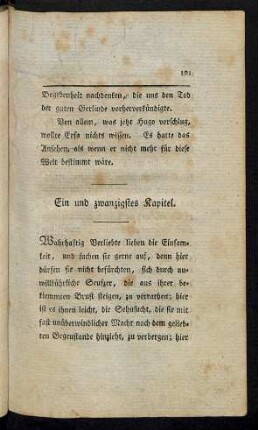 191
Begebenheit nachdenken, die uns den Tod
der guten Gerlinde vorherverkündigte.
Von allem, was jetzt Hugo vorschlug,
wollte Erfa nichts wissen. Es hatte das
Ansehen, als wenn er nicht mehr für diese
Welt bestimmt wäre.
Ein und zwanzigstes Kapitel.
Wahrhaftig Verliebte lieben die Einsam-
keit, und suchen sie gerne auf, denn hier
dürfen sie nicht befürchten, sich durch un-
willkührliche Seufzer, die aus ihrer be-
klemmten Brust steigen, zu verrathen; hier
ist es ihnen leicht, die Sehnsucht, die sie mit
fast unüberwindlicher Macht nach dem gelieb-
ten Gegenstande hinzieht, zu verbergen; hier